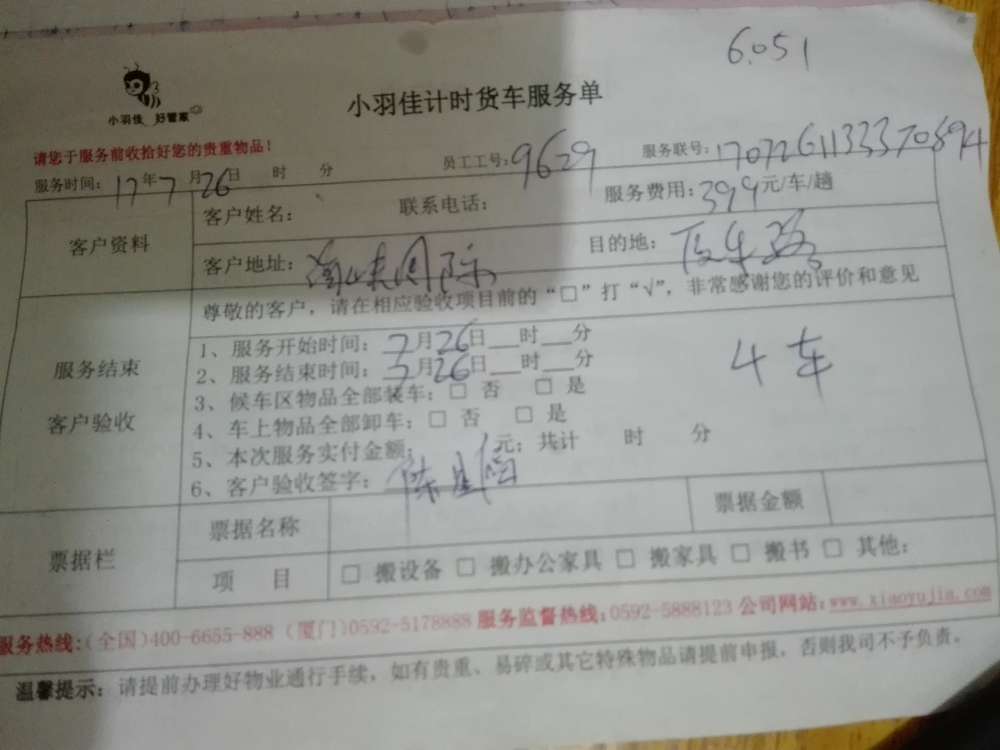 6.051
小羽佳 好管家
小羽佳计时货车服务单
请您于服务前收拾好您的贵重物品！
服务时间：17年7月26日 时 分 员工工号：9629 服务联号：1707261133370894
客户资料
客户姓名： 联系电话： 服务费用：399元/车/趟
客户地址：海峡国际 目的地：
尊敬的客户，请在相应验收项目前的“□”打“√”，非常感谢您的评价和意见
服务结束
客户验收
1、服务开始时间：7月26日__时__分
2、服务结束时间：7月26日__时__分
4车
3、候车区物品全部装车：□ 否 □ 是
4、车上物品全部卸车：□ 否 □ 是
5、本次服务实付金额： 元；共计 时 分
6、客户验收签字：陈
票据栏
票据名称 票据金额
项 目 □ 搬设备 □ 搬办公家具 □ 搬家具 □ 搬书 □ 其他：
服务热线：(全国)400-6655-888 (厦门)0592-5178888 服务监督热线：0592-5888123 公司网站：www.xiaoyujia.com
温馨提示：请提前办理好物业通行手续，如有贵重、易碎或其它特殊物品请提前申报，否则我司不予负责。